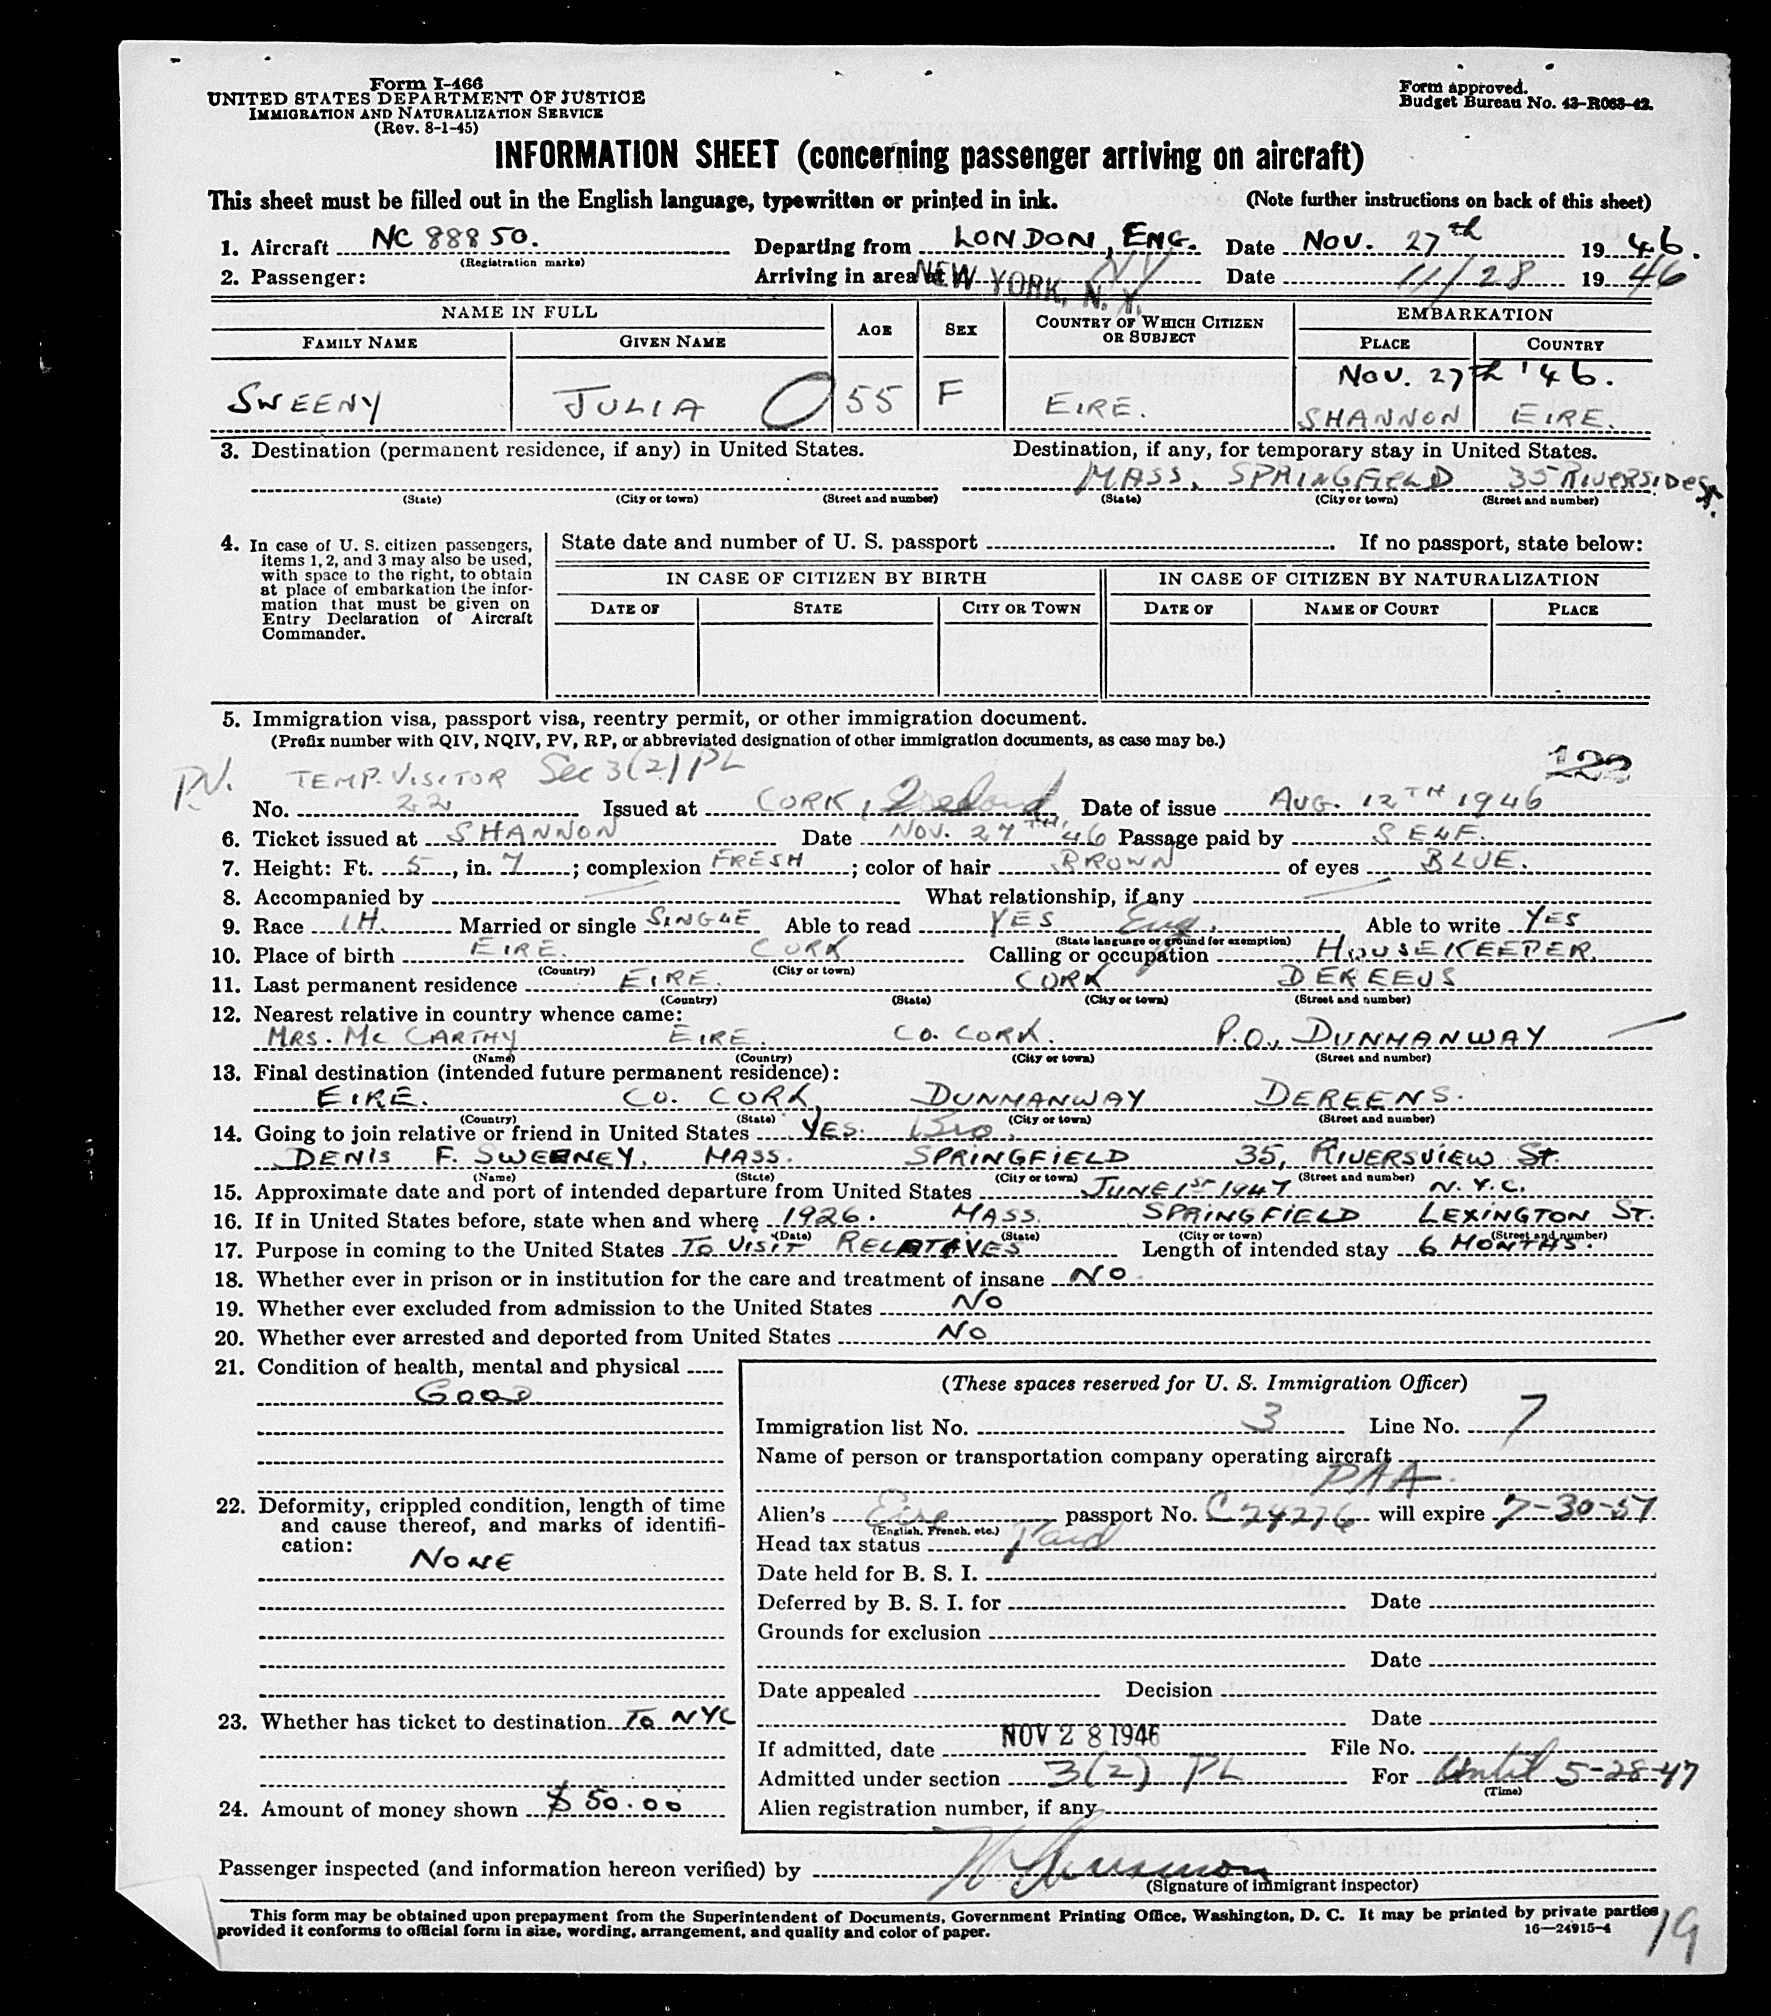 Form I-466
UNITED STATES DEPARTMENT OF JUSTICE
IMMIGRATION AND NATURALIZATION SERVICE
(Rev. 8-1-45)
Form approved.
Budget Bureau No. 43-R063-42.
INFORMATION SHEET (concerning passenger arriving on aircraft)
This sheet must be filled out in the English language, typewritten or printed in ink. (Note further instructions on back of this sheet)
1. Aircraft NC 88850. Departing from LONDON, ENG. Date NOV. 27th 1946.
(Registration marks)
2. Passenger: Arriving in area at NEW YORK, N. Y. NY Date 11/28 1946
NAME IN FULL AGE SEX COUNTRY OF WHICH CITIZEN OR SUBJECT EMBARKATION
FAMILY NAME GIVEN NAME PLACE COUNTRY
NOV. 27th '46.
SWEENY JULIA 55 F EIRE. SHANNON EIRE.
3. Destination (permanent residence, if any) in United States. Destination, if any, for temporary stay in United States.
MASS. SPRINGFIELD 35 RIVERSIDE ST.
(State) (City or town) (Street and number) (State) (City or town) (Street and number)
4. In case of U. S. citizen passengers, items 1, 2, and 3 may also be used, with space to the right, to obtain at place of embarkation the information that must be given on Entry Declaration of Aircraft Commander.
State date and number of U. S. passport . If no passport, state below:
IN CASE OF CITIZEN BY BIRTH IN CASE OF CITIZEN BY NATURALIZATION
DATE OF STATE CITY OR TOWN DATE OF NAME OF COURT PLACE
5. Immigration visa, passport visa, reentry permit, or other immigration document.
(Prefix number with QIV, NQIV, PV, RP, or abbreviated designation of other immigration documents, as case may be.)
122
P.V. TEMP. VISITOR Sec 3(2) PL
No. 22 Issued at CORK, Ireland Date of issue AUG. 12TH 1946
6. Ticket issued at SHANNON Date NOV. 27TH, 46 Passage paid by SELF.
7. Height: Ft. 5, in. 7; complexion FRESH; color of hair BROWN of eyes BLUE.
8. Accompanied by — What relationship, if any —
9. Race IH. Married or single SINGLE Able to read YES Eng. Able to write YES
(State language or ground for exemption)
10. Place of birth EIRE. CORK Calling or occupation HOUSEKEEPER.
(Country) (City or town)
11. Last permanent residence EIRE. CORK DEREENS
(Country) (State) (City or town) (Street and number)
12. Nearest relative in country whence came:
MRS. MC CARTHY EIRE. CO. CORK. P.O., DUNMANWAY
(Name) (Country) (City or town) (Street and number)
13. Final destination (intended future permanent residence):
EIRE. CO. CORK, DUNMANWAY DEREENS.
(Country) (State) (City or town) (Street and number)
14. Going to join relative or friend in United States YES. Bro.
DENIS F. SWEENEY. MASS. SPRINGFIELD 35, RIVERSVIEW St.
(Name) (State) (City or town) (Street and number)
15. Approximate date and port of intended departure from United States JUNE 1ST 1947 N.Y.C.
16. If in United States before, state when and where 1926. MASS. SPRINGFIELD LEXINGTON ST.
(Date) (State) (City or town) (Street and number)
17. Purpose in coming to the United States TO VISIT RELATIVES Length of intended stay 6 MONTHS.
18. Whether ever in prison or in institution for the care and treatment of insane NO
19. Whether ever excluded from admission to the United States NO
20. Whether ever arrested and deported from United States NO
21. Condition of health, mental and physical
GOOD
22. Deformity, crippled condition, length of time and cause thereof, and marks of identification:
NONE
23. Whether has ticket to destination To NYC
24. Amount of money shown $50.00
(These spaces reserved for U. S. Immigration Officer)
Immigration list No. 3 Line No. 7
Name of person or transportation company operating aircraft
PAA.
Alien's Eire passport No. C 24276 will expire 7-30-51
(English, French, etc.)
Head tax status Paid
Date held for B. S. I.
Deferred by B. S. I. for Date
Grounds for exclusion
Date
Date appealed Decision
Date
If admitted, date NOV 28 1946 File No.
Admitted under section 3(2) PL For Until 5-28-47
(Time)
Alien registration number, if any
Passenger inspected (and information hereon verified) by
(Signature of immigrant inspector)
This form may be obtained upon prepayment from the Superintendent of Documents, Government Printing Office, Washington, D. C. It may be printed by private parties
provided it conforms to official form in size, wording, arrangement, and quality and color of paper. 16—24915-4
19